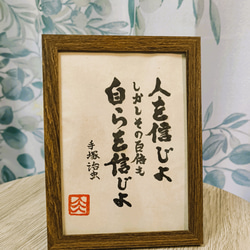 人を信じよ
しかしその百倍も
自らを信じよ
手塚治虫